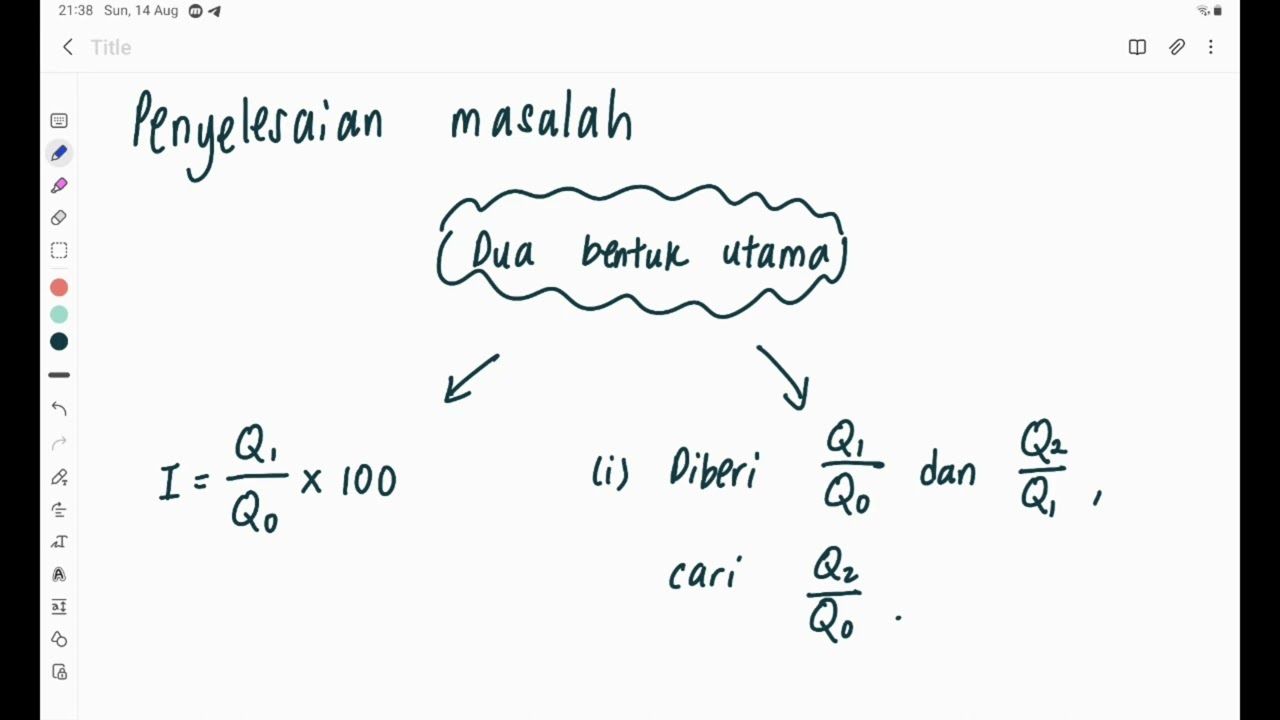 21:38 Sun, 14 Aug
Title
Penyelesaian masalah
Dua bentuk utama
I = Q₁/Q₀ × 100
(i) Diberi Q₁/Q₀ dan Q₂/Q₁ ,
cari Q₂/Q₀ .